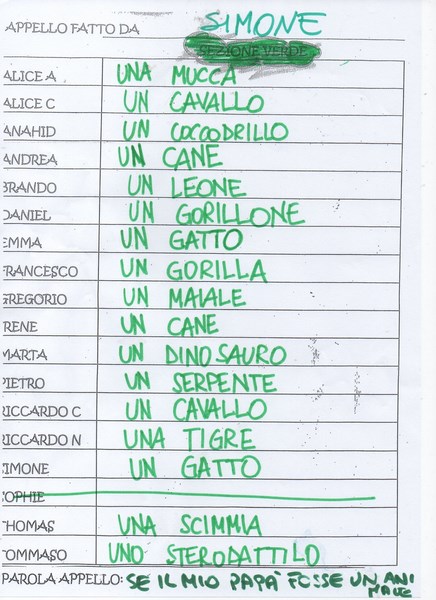 APPELLO FATTO DA SIMONE
SEZIONE VERDE
ALICE A UNA MUCCA
ALICE C UN CAVALLO
ANAHID UN COCCODRILLO
ANDREA UN CANE
BRANDO UN LEONE
DANIEL UN GORILLONE
EMMA UN GATTO
FRANCESCO UN GORILLA
GREGORIO UN MAIALE
IRENE UN CANE
MARTA UN DINOSAURO
PIETRO UN SERPENTE
RICCARDO C UN CAVALLO
RICCARDO N UNA TIGRE
SIMONE UN GATTO
SOPHIE
THOMAS UNA SCIMMIA
TOMMASO UNO STERODATTILO
PAROLA APPELLO: SE IL MIO PAPA' FOSSE UN ANI
MALE